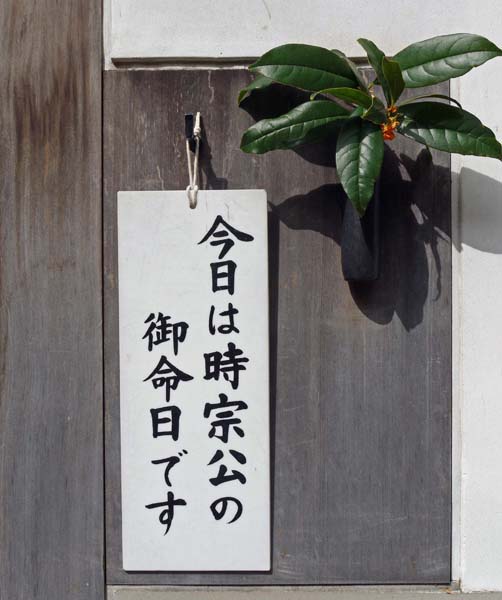 今日は時宗公の
御命日です